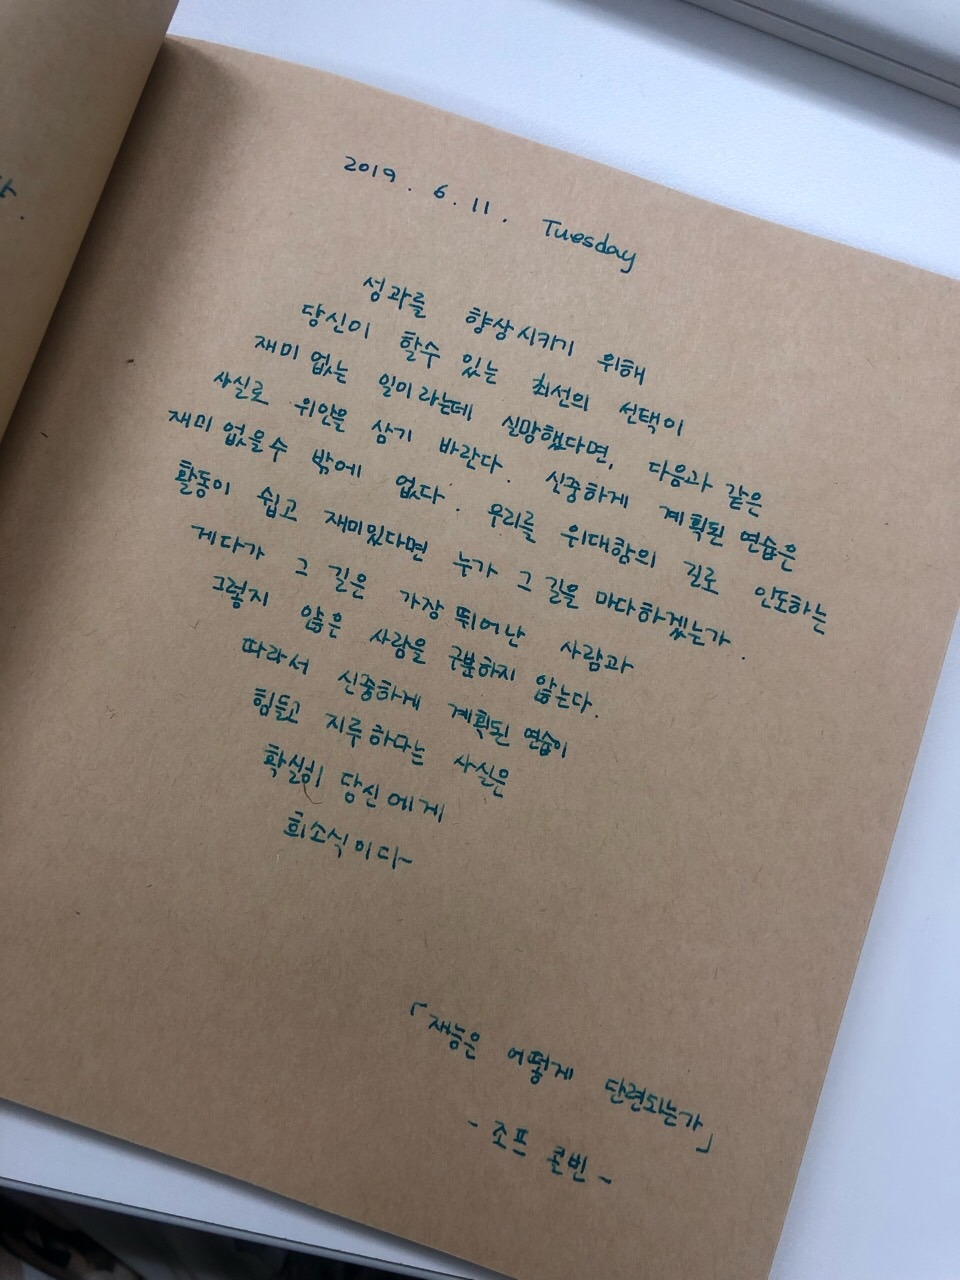 2019. 6. 11. Tuesday
성과를 향상시키기 위해
당신이 할수 있는 최선의 선택이
재미 없는 일이라는데 실망했다면, 다음과 같은
사실로 위안을 삼기 바란다. 신중하게 계획된 연습은
재미 없을수 밖에 없다. 우리를 위대함의 길로 인도하는
활동이 쉽고 재미있다면 누가 그 길을 마다하겠는가.
게다가 그 길은 가장 뛰어난 사람과
그렇지 않은 사람을 구분하지 않는다.
따라서 신중하게 계획된 연습이
힘들고 지루하다는 사실은
확실히 당신에게
희소식이다~
「재능은 어떻게 단련되는가」
- 조프 콜빈 -